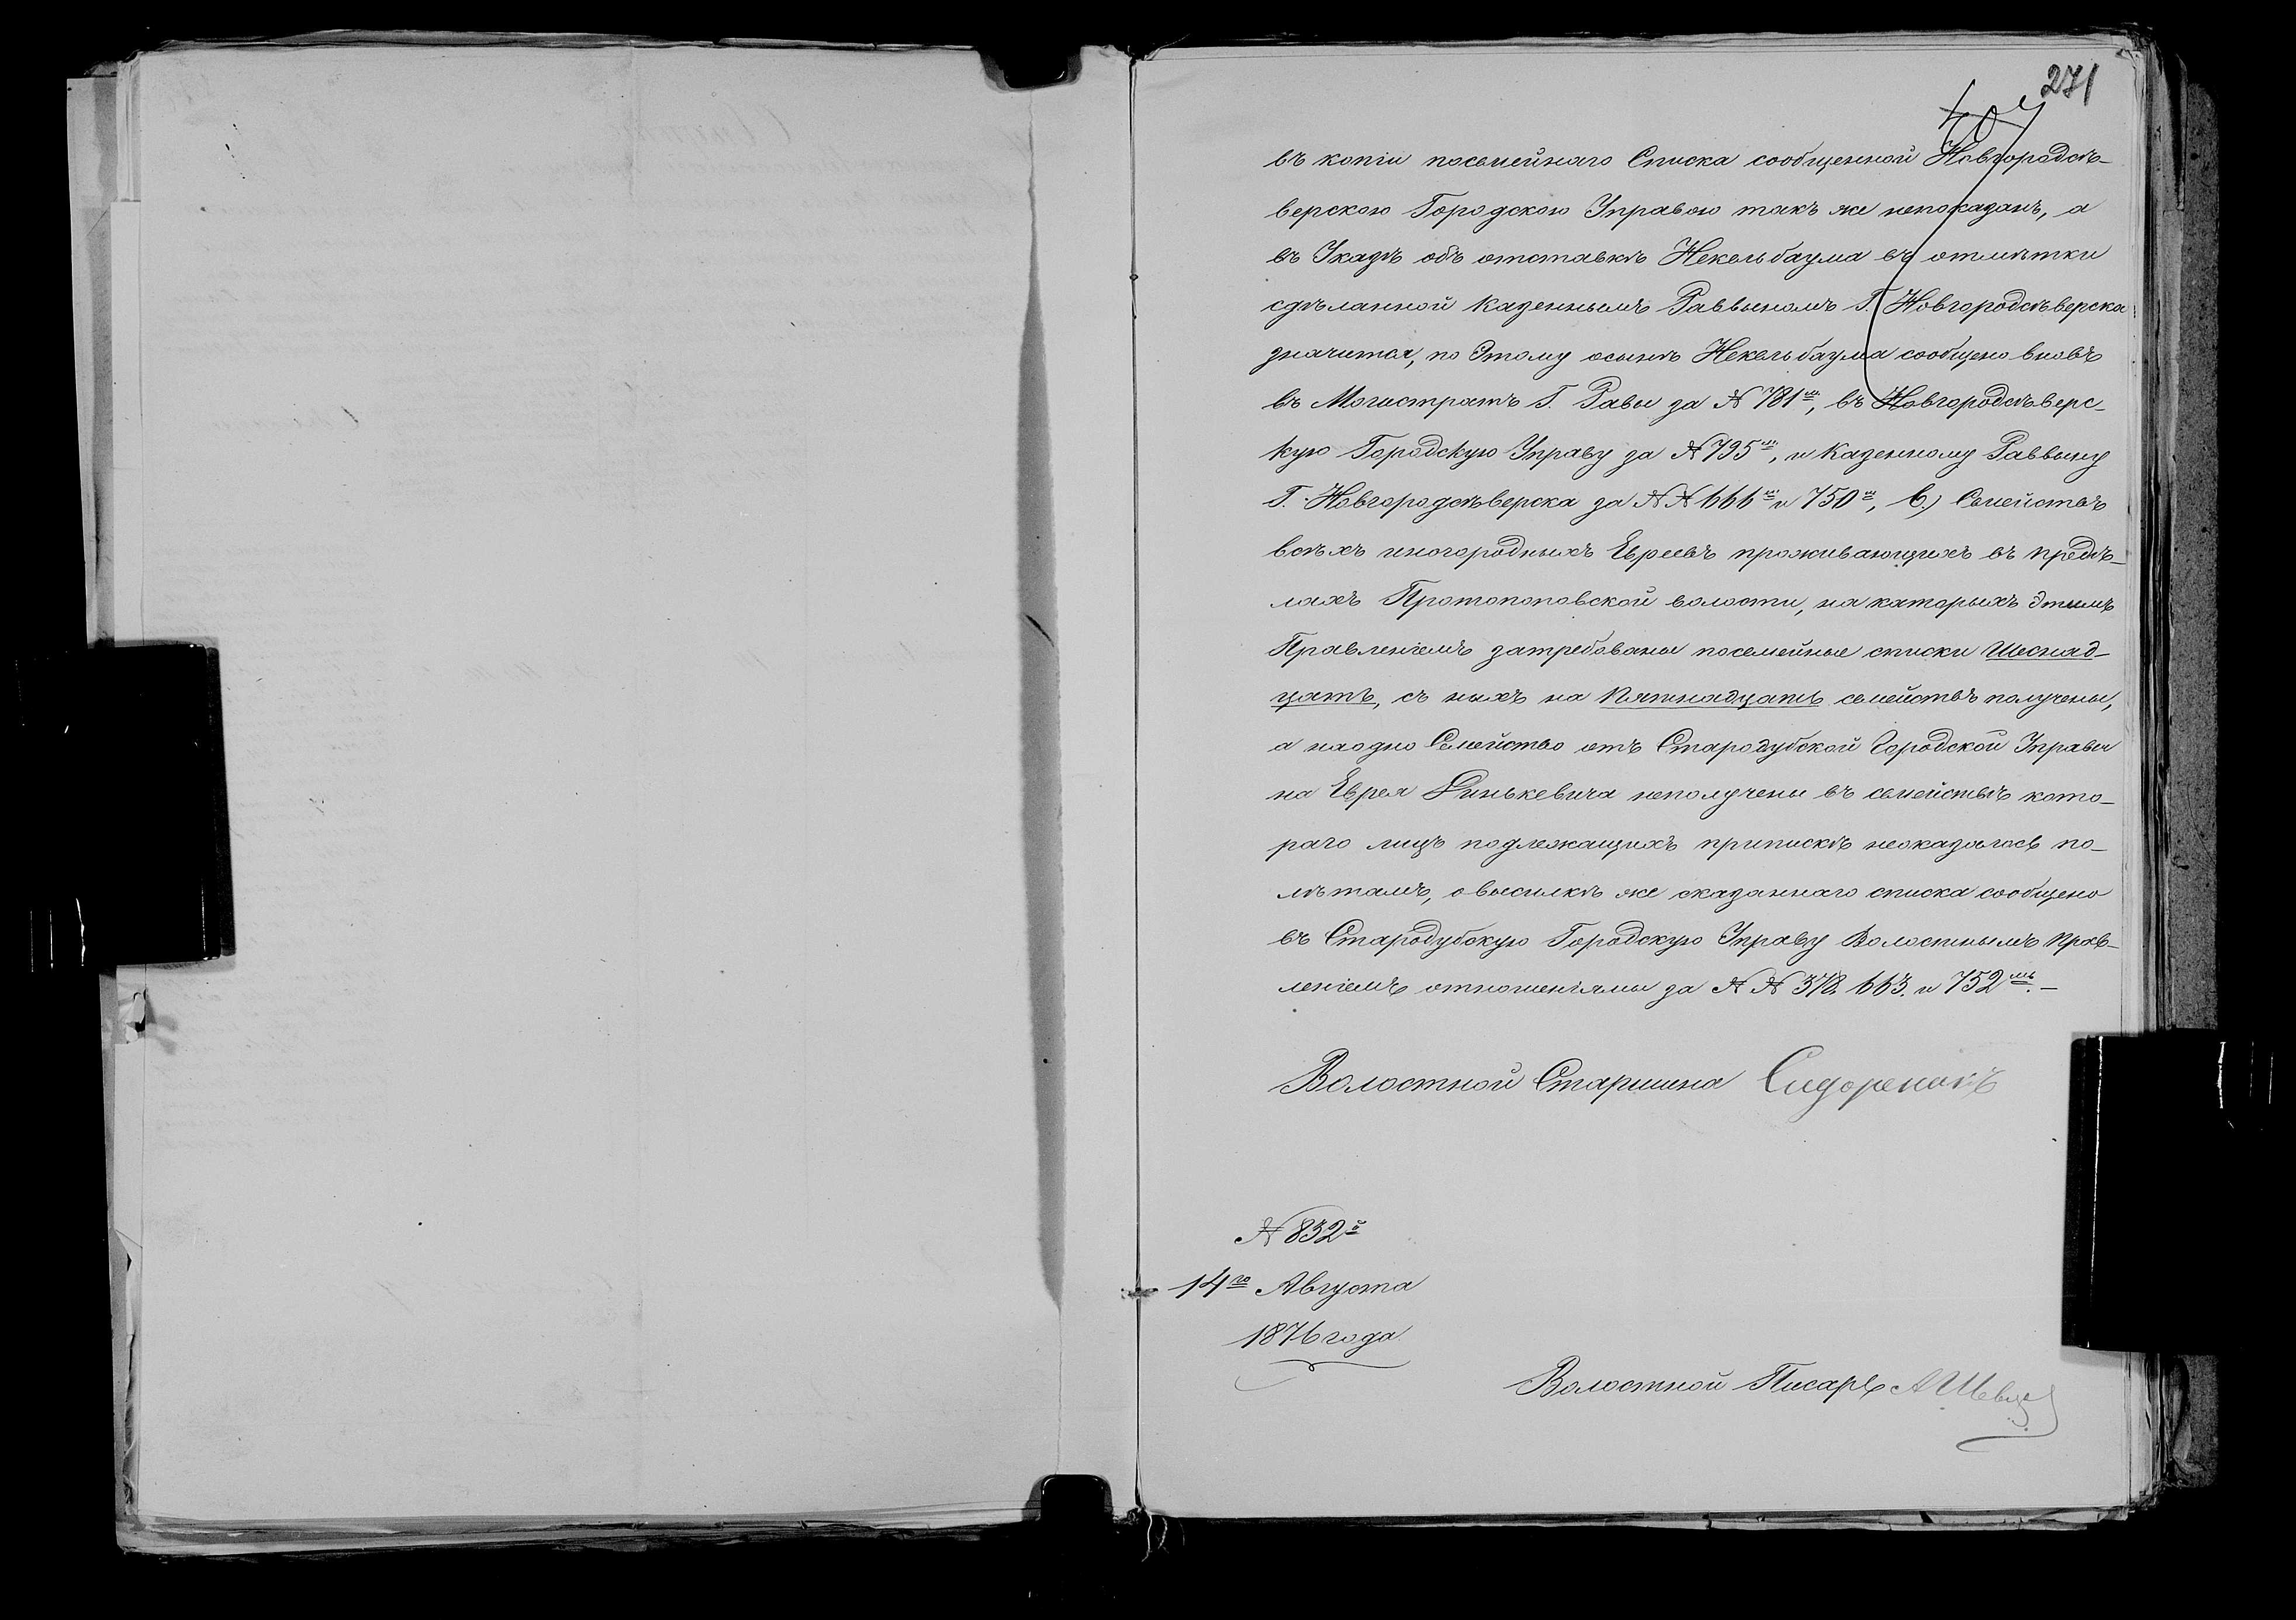 271
404
въ копіи посемейнаго Списка сообщенной Новгородсѣ-
верскою Городскою Управою такъ же непоказанъ, а
въ Указѣ объ отставкѣ Некельбаума въ отмѣтки
сдѣланной Казеннымъ Раввыномъ Г. Новгородсѣверска
значится, по Этому осынѣ Некельбаума сообщено вновь
въ Могистратъ Г. Равы за № 781м, въ Новгородсѣверс-
кую Городскую Управу за № 795м, и Казенному Раввыну
Г. Новгородсѣверска за №№ 666м и 750м, 6.) Семействъ
всѣхъ иногородныхъ Евреевъ проживающихъ въ предѣ-
лахъ Протопоповской волости, на каторыхъ Этимъ
Правленіемъ затребованы посемейные списки Шеснад-
цать, съ ныхъ на Пятнадцать семействъ получены,
а наодно Семейство отъ Стародубской Городской Управы
на Еврея Динькевича неполучены въ семействѣ кото-
раго лицъ подлежащихъ припискѣ неоказалось по-
лѣтамъ, овысилкѣ же сказаннаго списка сообщено
въ Стародубскую Городскую Управу Волостнымъ Прав-
леніемъ отношеніямы за №№ 378. 663. и 752мъ. —
Волостной Старшина Сидоренокъ
№ 832й
14го Августа
1876 года
Волостной Писарь А Шевц